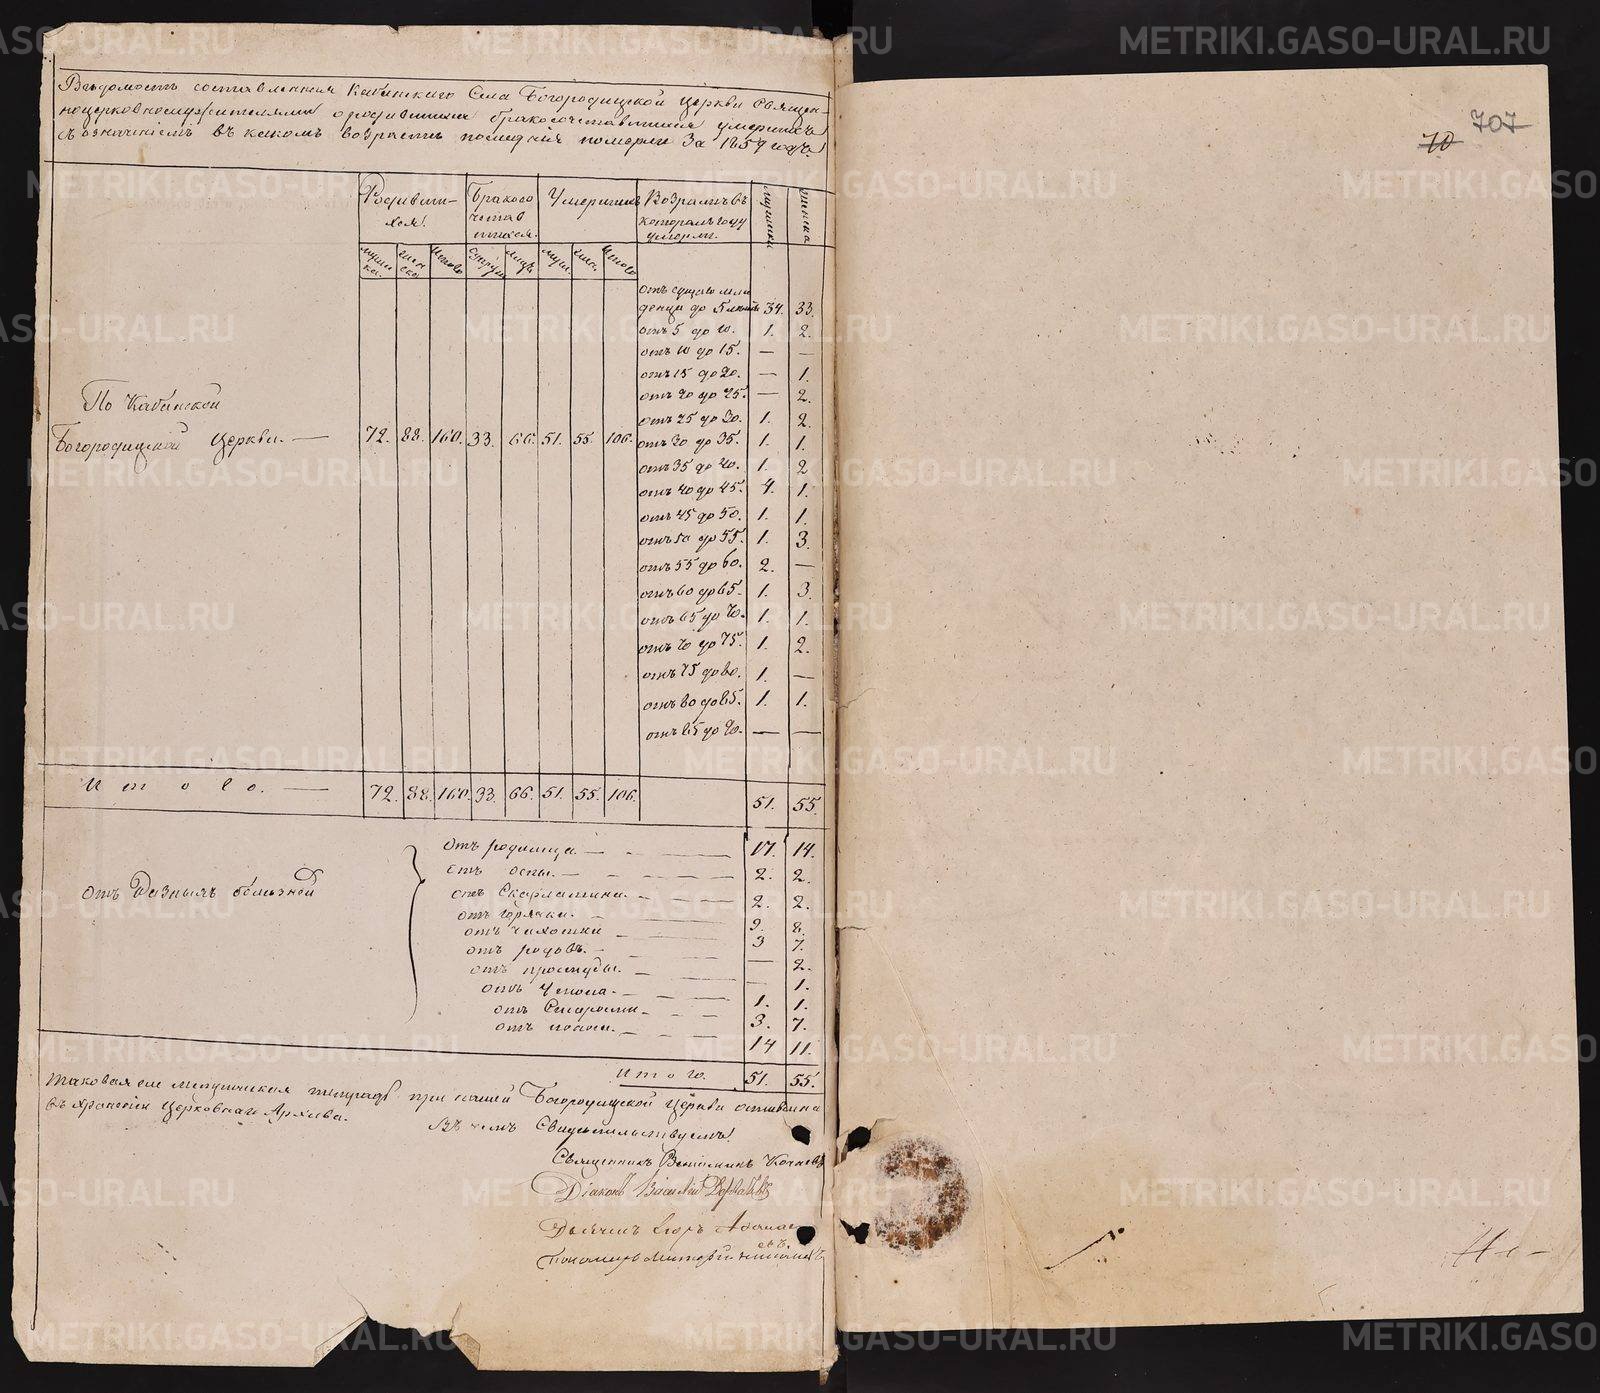 Ведомость составленная Кабанскаго Села Богородицкой церкви Священ-
ноцерковнослужителями о родившихся бракосочетавшихся умершихъ
съ означеніемъ въ какомъ возрастѣ последнія померли за 1857 годъ.
707
70
Родивши-
хся.
Бракосо
четав
шихся.
Умершихъ
Возрастъ въ
которомъ году
умерли.
мужска
женска
мужска.
женска
Итого
супруж
лицъ
муж.
жен.
Итого
отъ сущаго мла
денца до 5 летъ 34. 33.
отъ 5 до 10. 1. 2.
отъ 10 до 15. — —
отъ 15 до 20. — 1.
отъ 20 до 25. — 2.
отъ 25 до 30. 1. 2.
По Кабанской
Богородицкой церкви. — 72. 88. 160. 33. 66. 51. 55. 106. отъ 30 до 35. 1. 1.
отъ 35 до 40. 1. 2
отъ 40 до 45. 4. 1.
отъ 45 до 50. 1. 1.
отъ 50 до 55. 1. 3.
отъ 55 до 60. 2. —
отъ 60 до 65. 1. 3.
отъ 65 до 70. 1. 1.
отъ 70 до 75. 1. 2.
отъ 75 до 80. 1. —
отъ 80 до 85. 1. 1.
отъ 85 до 90. — —
Итого. — 72. 88. 160. 33. 66. 51. 55. 106. 51. 55
Отъ разныхъ болѣзней
отъ родимца — 17. 14.
отъ оспы. — 2. 2.
отъ Скарлатины. 2. 2.
отъ горячки. 9. 8.
отъ чахотки 3 7.
отъ родовъ. — 2.
отъ простуды. — 1.
отъ 1. 1.
отъ Старости 3. 7.
отъ поноса. 14 11.
Итого. 51. 55.
Таковая сія метрическая тетрадь при нашей Богородицкой Церкви оставлена
въ храненіи Церковнаго Архива.
Въ чемъ Свидетельствуемъ.
Священникъ Веніаминъ
Діаконъ Василій
Дьячекъ Егоръ
Пономарь
METRIKI.GASO-URAL.RU